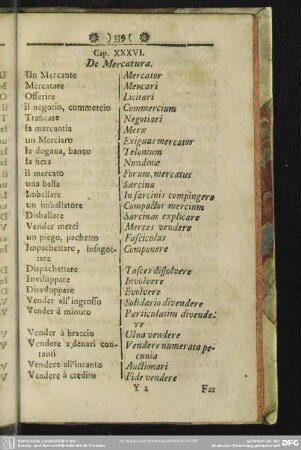 ) 339 (
Cap. XXXVI.
De Mercatura.
Un Mercante Mercator
Mercatare Mercari
Offerire Licitari
il negotio, commercio Commercium
Traficare Negotiari
la mercantia Merx
un Merciaro Exiguus mercator
la dogana, banco Telonium
la fiera Nundinæ
il mercato Forum, mercatus
una balla Sarcina
Imballare In sarcinis compingere
un imballatore Compactor mercium
Disballare Sarcinas explicare
Vender merci Merces vendere
un piego, pachetto Fasciculus
Impachettare, infagot- Componere
tare
Dispachettare Fasces dissolvere
Inviluppare Involvere
Disviluppare Evolvere
Vender all'ingrosso Solidario divendere
Vender à minuto Particulatim divende-
re
Vender à braccio Ulna vendere
Vendere a denari con- Vendere numerata pe-
tanti cunia
Vendere all'incanto Auctionari
Vendere à credito Fide vendere
Y 2 Far